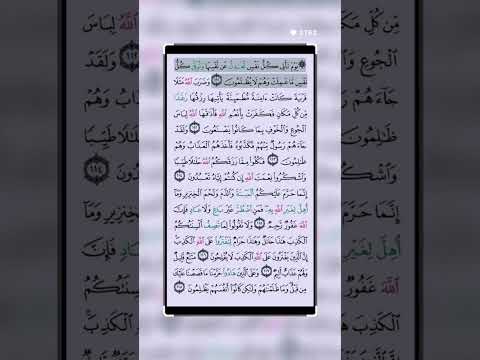 ۞ يَوْمَ تَأْتِى كُلُّ نَفْسٍ تُجَـٰدِلُ عَن نَّفْسِهَا وَتُوَفَّىٰ كُلُّ
نَفْسٍ مَّا عَمِلَتْ وَهُمْ لَا يُظْلَمُونَ ١١١ وَضَرَبَ ٱللَّهُ مَثَلًا
قَرْيَةً كَانَتْ ءَامِنَةً مُّطْمَئِنَّةً يَأْتِيهَا رِزْقُهَا رَغَدًا
مِّن كُلِّ مَكَانٍ فَكَفَرَتْ بِأَنْعُمِ ٱللَّهِ فَأَذَٰقَهَا ٱللَّهُ لِبَاسَ
ٱلْجُوعِ وَٱلْخَوْفِ بِمَا كَانُوا۟ يَصْنَعُونَ ١١٢ وَلَقَدْ
جَآءَهُمْ رَسُولٌ مِّنْهُمْ فَكَذَّبُوهُ فَأَخَذَهُمُ ٱلْعَذَابُ وَهُمْ
ظَـٰلِمُونَ ١١٣ فَكُلُوا۟ مِمَّا رَزَقَكُمُ ٱللَّهُ حَلَـٰلًا طَيِّبًا
وَٱشْكُرُوا۟ نِعْمَتَ ٱللَّهِ إِن كُنتُمْ إِيَّاهُ تَعْبُدُونَ ١١٤
إِنَّمَا حَرَّمَ عَلَيْكُمُ ٱلْمَيْتَةَ وَٱلدَّمَ وَلَحْمَ ٱلْخِنزِيرِ وَمَآ
أُهِلَّ لِغَيْرِ ٱللَّهِ بِهِۦ فَمَنِ ٱضْطُرَّ غَيْرَ بَاغٍ وَلَا عَادٍ فَإِنَّ
ٱللَّهَ غَفُورٌ رَّحِيمٌ ١١٥ وَلَا تَقُولُوا۟ لِمَا تَصِفُ أَلْسِنَتُكُمُ
ٱلْكَذِبَ هَـٰذَا حَلَـٰلٌ وَهَـٰذَا حَرَامٌ لِّتَفْتَرُوا۟ عَلَى ٱللَّهِ ٱلْكَذِبَ
إِنَّ ٱلَّذِينَ يَفْتَرُونَ عَلَى ٱللَّهِ ٱلْكَذِبَ لَا يُفْلِحُونَ ١١٦ مَتَـٰعٌ قَلِيلٌ
وَلَهُمْ عَذَابٌ أَلِيمٌ ١١٧ وَعَلَى ٱلَّذِينَ هَادُوا۟ حَرَّمْنَا مَا قَصَصْنَا عَلَيْكَ
مِن قَبْلُ وَمَا ظَلَمْنَـٰهُمْ وَلَـٰكِن كَانُوٓا۟ أَنفُسَهُمْ يَظْلِمُونَ ١١٨